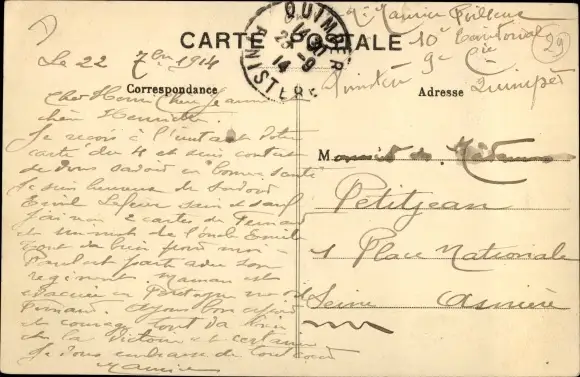 CARTE POSTALE
QUIMPER
FINISTERE
Correspondance
Adresse
29
Maurice
10e Territorial
9e Cie
Quimper
Le 22 7bre 1914
Cher Henri Cher Jeanne
chère Henriette
Je reçois à l'instant votre
carte du 4 et suis content
de vous savoir en bonne santé
Je suis heureux de savoir
Emile Lefevre sain et sauf
J'ai reçu 2 cartes de Fernand
de l'oncle Emile
tout va bien pour moi
Paul est parti avec son
régiment. Maman est
évacuée en Bretagne
Fernand. Ayons bon espoir
et courage tout va bien
la Victoire est certaine
Je vous embrasse de tout coeur
Maurice
M
Petitjean
1 Place Nationale
Seine Asnière